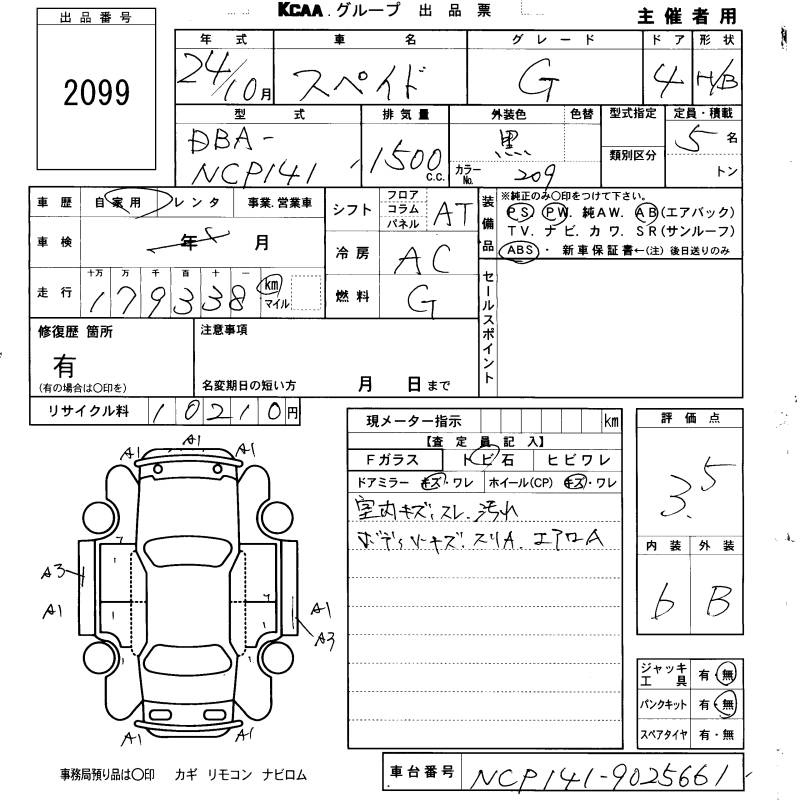 KCAA.グループ 出品票
主催者用
出品番号
2099
年式 車名 グレード ドア 形状
24/10月 スペイド G 4 H/B
型式 排気量 外装色 色替 型式指定 定員・積載
DBA-NCP141 1500c.c. 黒 カラーNo. 209 類別区分 5名
トン
車歴 自家用 レンタ 事業.営業車
シフト フロア コラム パネル AT
装備品 ※純正のみ〇印をつけて下さい。
PS PW. 純AW. AB(エアバック)
TV. ナビ. カワ. SR(サンルーフ)
ABS・ 新車保証書←(注) 後日送りのみ
車検 年 月
冷房 AC
走行 十万 万 千 百 十 一
179338 km マイル
燃料 G
セールスポイント
修復歴 箇所
有
(有の場合は〇印を)
注意事項
名変期日の短い方 月 日まで
リサイクル料 10210円
現メーター指示 km
【査定員記入】
Fガラス トビ石 ヒビワレ
ドアミラー キズ・ワレ ホイール(CP) キズ・ワレ
室内キズ.スレ.汚れ
ボディ小キズ.スリA.エアロA
評価点
3.5
内装 外装
6 B
A1 A1 A1
A3 A1
A1 A3
A1 A1
ジャッキ工具 有・無
パンクキット 有・無
スペアタイヤ 有・無
事務局預り品は〇印 カギ リモコン ナビロム
車台番号 NCP141-9025661